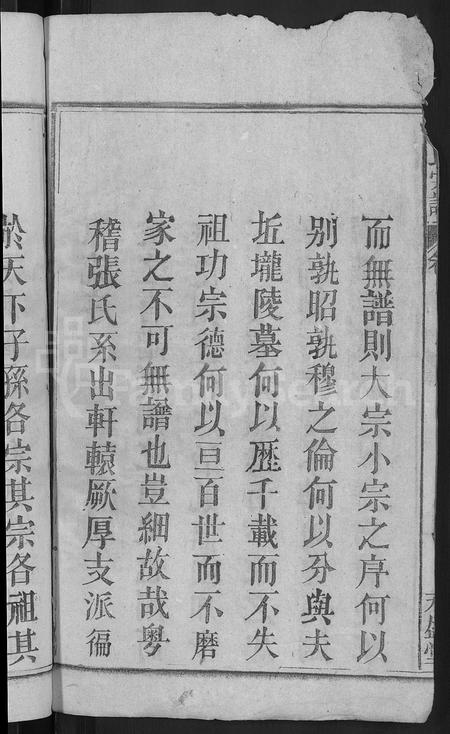 而無譜則大宗小宗之序何以
別孰昭孰穆之倫何以分與夫
坵壠陵墓何以歷千載而不失
祖功宗德何以亘百世而不磨
家之不可無譜也豈細故哉粵
稽張氏系出軒轅厥厚支派徧
於天下子孫各宗其宗各祖其
FamilySearch